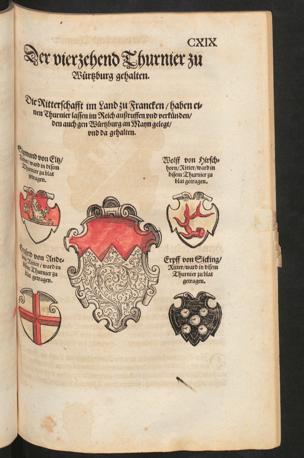 CXIX
Der vierzehend Thurnier zu
Würtzburg gehalten.
Die Ritterschafft im Land zu Francken / haben ei-
nen Thurnier lassen im Reich außruffen vnd verkünden /
den auch gen Würtzburg an Mayn gelegt /
vnd da gehalten.
von Eltz /
ward in
disem Thurnier zu blat
getragen.
Wolff von Hirsch-
horn / Ritter / ward in
disem Thurnier zu
blat getragen.
von Ande-
Ritter / ward in
disem Thurnier zu blat
getragen.
Erpff von Sicking /
Ritter / ward in disem
Thurnier zu blat
getragen.